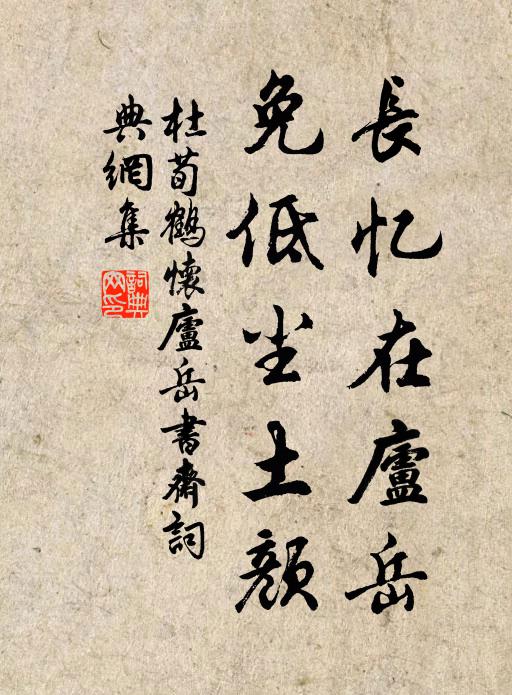 長忆在廬岳
免低尘土颜
杜荀鶴懷廬岳書齋詞
典網集
詞典
网印